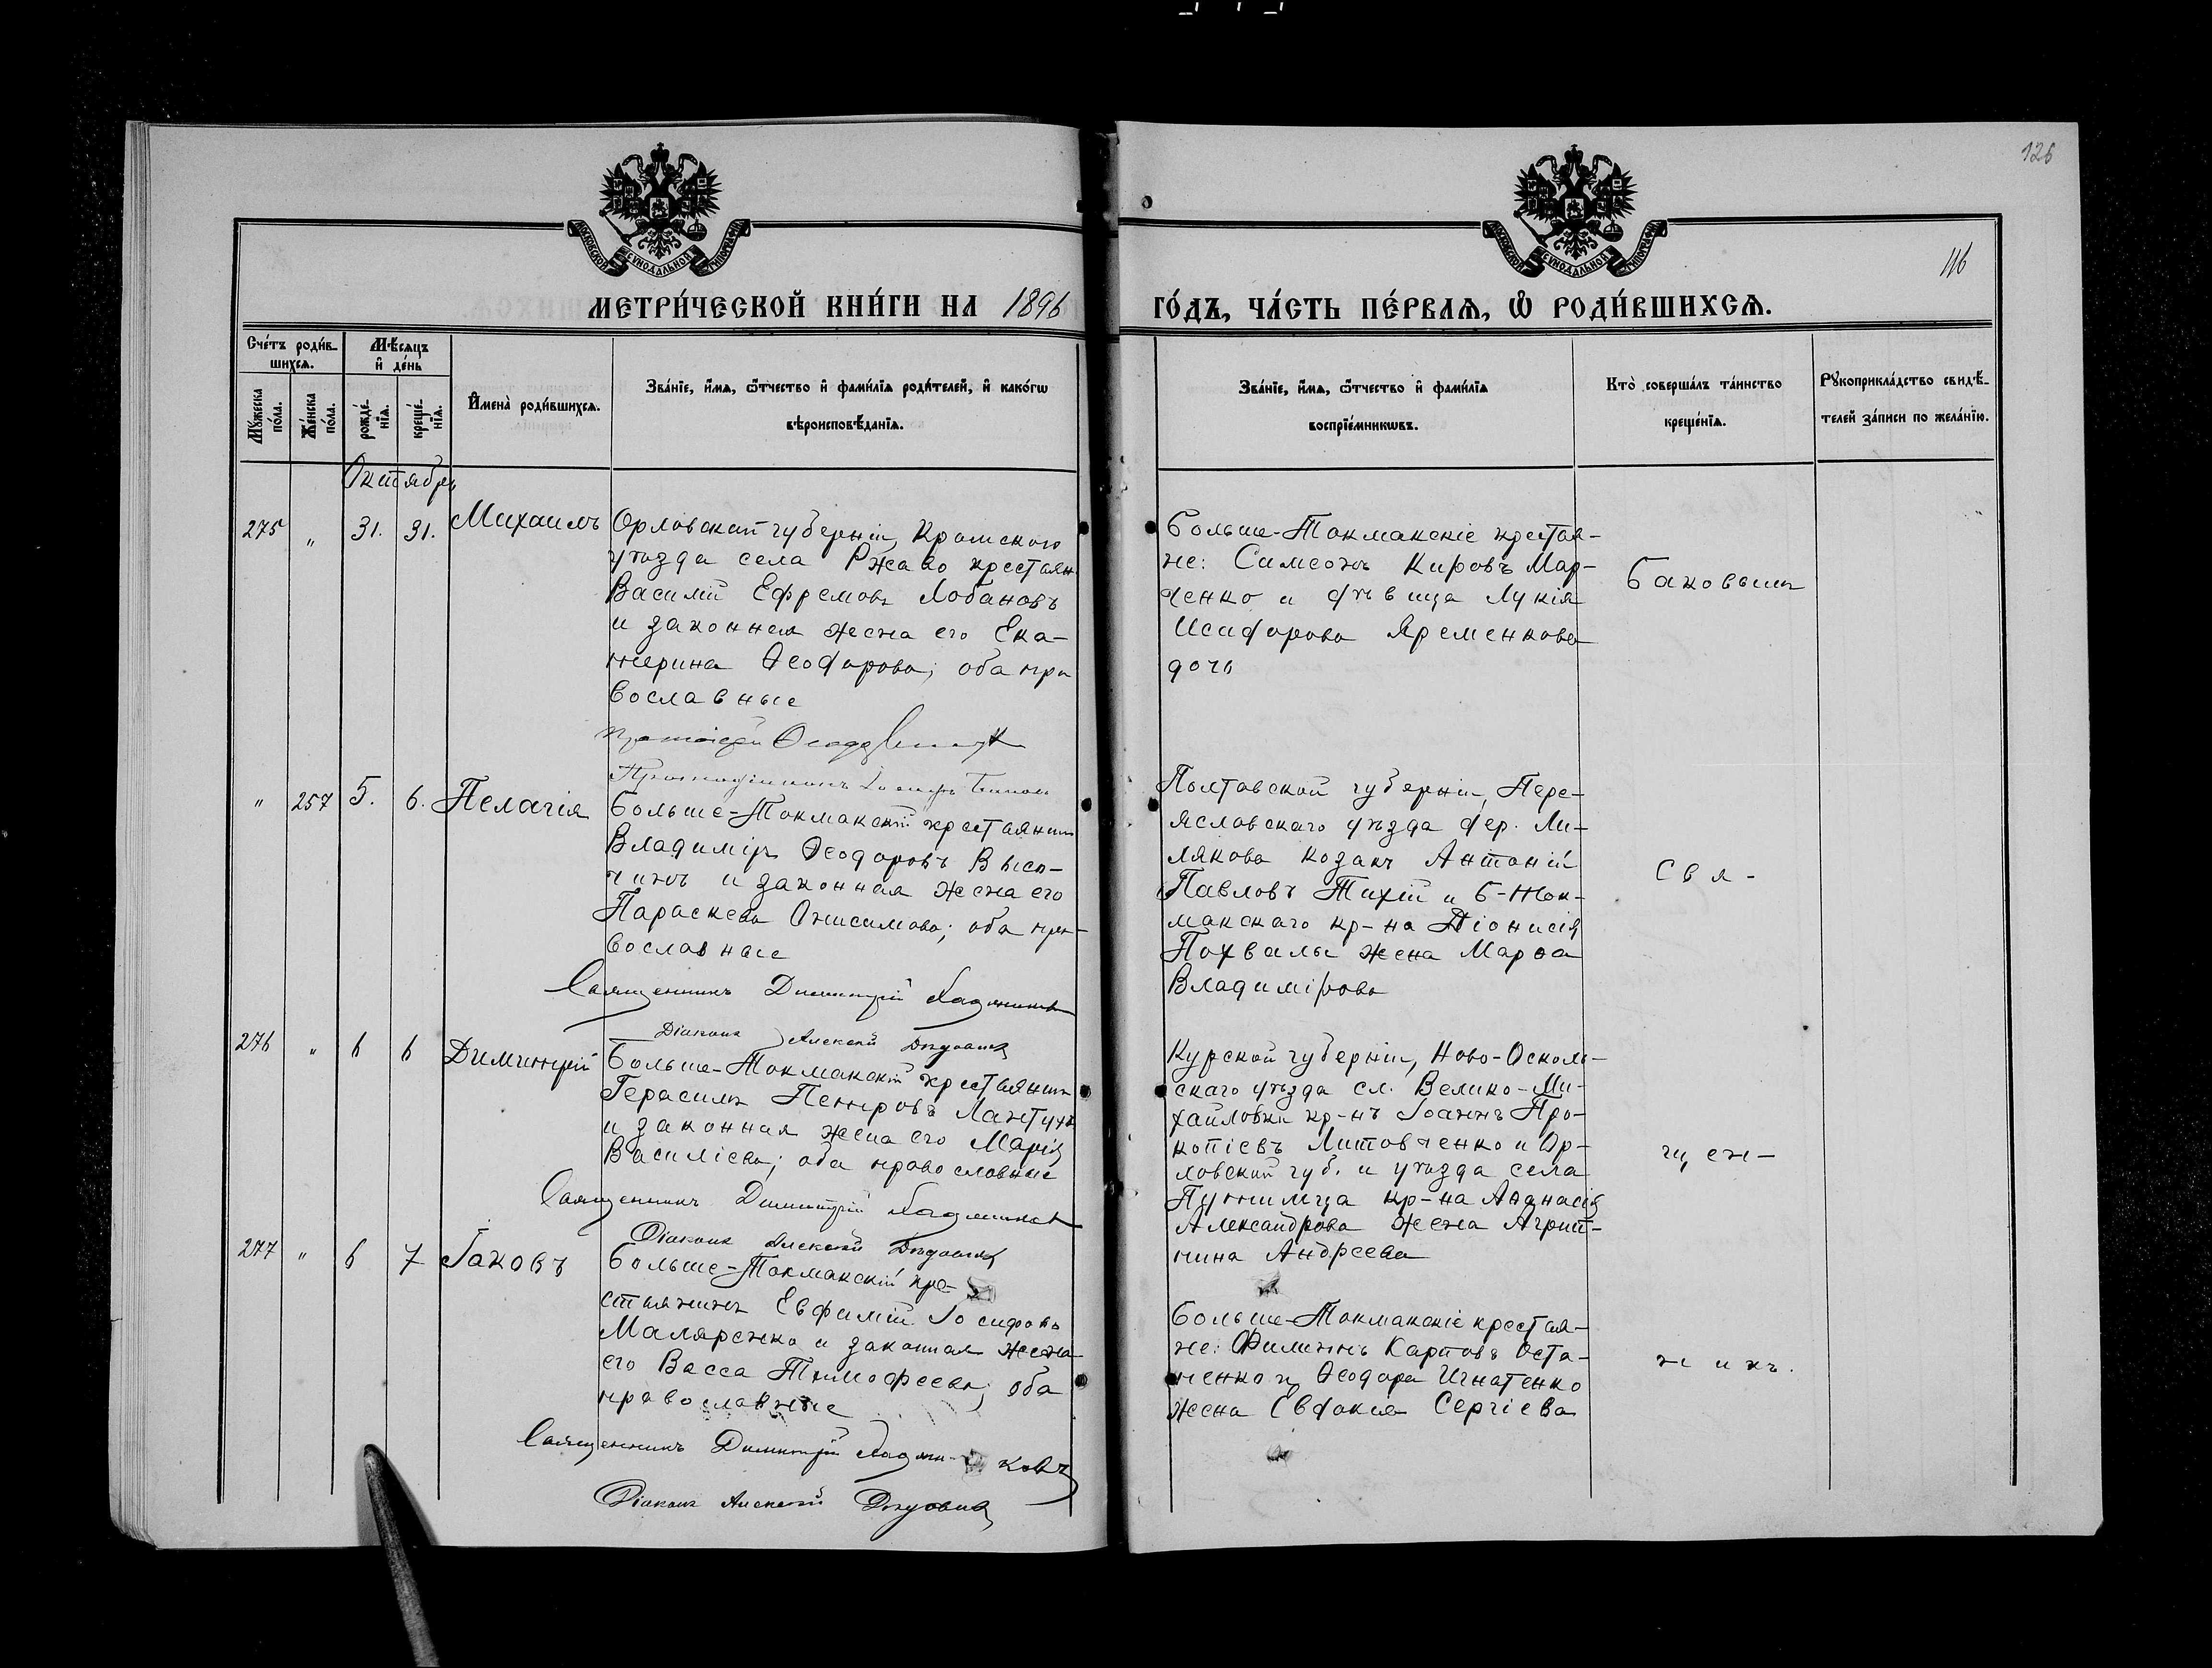 126
116
МОСКОВСКОЙ СѴНОДАЛЬНОЙ ТИПОГРАФІИ
МОСКОВСКОЙ СѴНОДАЛЬНОЙ ТИПОГРАФІИ
МЕТРИ́ЧЕСКОЙ КНИ́ГИ НА 1896
ГО́ДЪ, ЧА́СТЬ ПЕ́РВАЯ, Ѡ РОДИ́ВШИХСЯ.
Сче́тъ роди́в-
шихся.
Мѣ́сяцъ
и де́нь
Мꙋ́жеска
по́ла.
Же́нска
по́ла.
рожде́-
нїя.
креще́-
нїя.
Имена̀ роди́вшихся.
Зва́нїе, и́мя, ѻ҆́тчество и фами́лїя роди́телей, и како́гѡ
вѣроисповѣ́данїя.
Зва́нїе, и́мя, ѻ҆́тчество и фами́лїя
воспрїе́мникѡвъ.
Кто̀ соверша́лъ та́инство
креще́нїя.
Рꙋкоприкла́дство свидѣ́-
телей за́писи по жела́нїю.
Октябрь
275 " 31. 31. Михаилъ
Орловской губерніи, Кромского
уѣзда села Ржаво крестьян.
Василій Ефремовъ Лобановъ
и законная жена его Ека-
терина Ѳеодорова; оба пра
вославные
Протоіерей
Больше-Токмакскіе крестья-
не: Симеонъ Кировъ Мар-
ченко и дѣвица Лукія
Исидорова Яременкова
дочь
Баковымъ
" 257 5. 6. Пелагія
Больше-Токмакскій крестьянинъ
Владиміръ Ѳеодоровъ Высо-
чинъ и законная жена его
Параскева Онисимова; оба пра-
вославные
Священникъ Димитрій
Діаконъ Алексѣй
Полтавской губерніи, Пере-
яславскаго уѣзда дер. Ли-
лякова козакъ Антоній
Павловъ Тихій и Б-Ток-
макскаго кр-на Діонисія
Похвалы жена Марѳа
Владимірова
Свя-
276 " 6 6 Димитрій
Больше-Токмакскій крестьянинъ
Герасимъ Петровъ Лантухъ
и законная жена его Марія
Василіева; оба православные
Священникъ Димитрій
Діаконъ Алексѣй
Курской губерніи, Ново-Осколь-
скаго уѣзда сл. Велико-Ми-
хайловки кр-нъ Іоаннъ Про-
копіевъ Литовченко и Ор-
ловской губ. и уѣзда села
кр-на Аѳанасія
Александрова жена Агрип-
пина Андреева
щен-
277 " 6 7 Іаковъ
Больше-Токмакскій кре-
стьянинъ Евфимій Іосифовъ
Маляренко и законная жена
его Васса Тимофеева; оба
православные
Священникъ Димитрій
Діаконъ Алексѣй
Больше-Токмакскіе крестья-
не: Филиппъ Карповъ Оста-
пенко и Ѳеодора Игнатенко
жена Евдокія Сергіева
никъ.